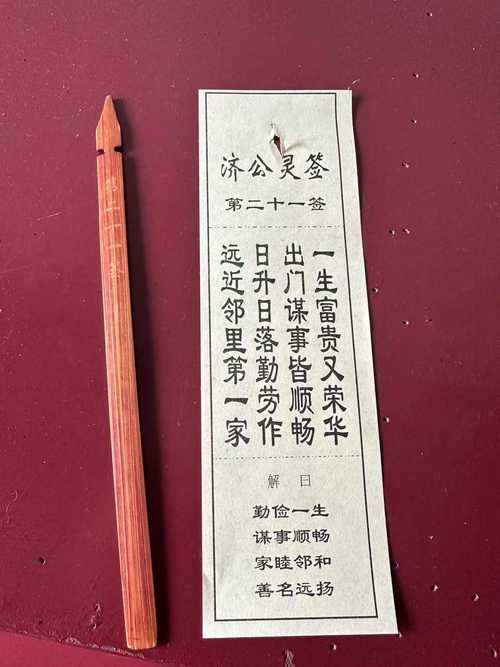 济公灵签
第二十一签
一生富贵又荣华
出门谋事皆顺畅
日升日落勤劳作
远近邻里第一家
解曰
勤俭一生
谋事顺畅
家睦邻和
善名远扬